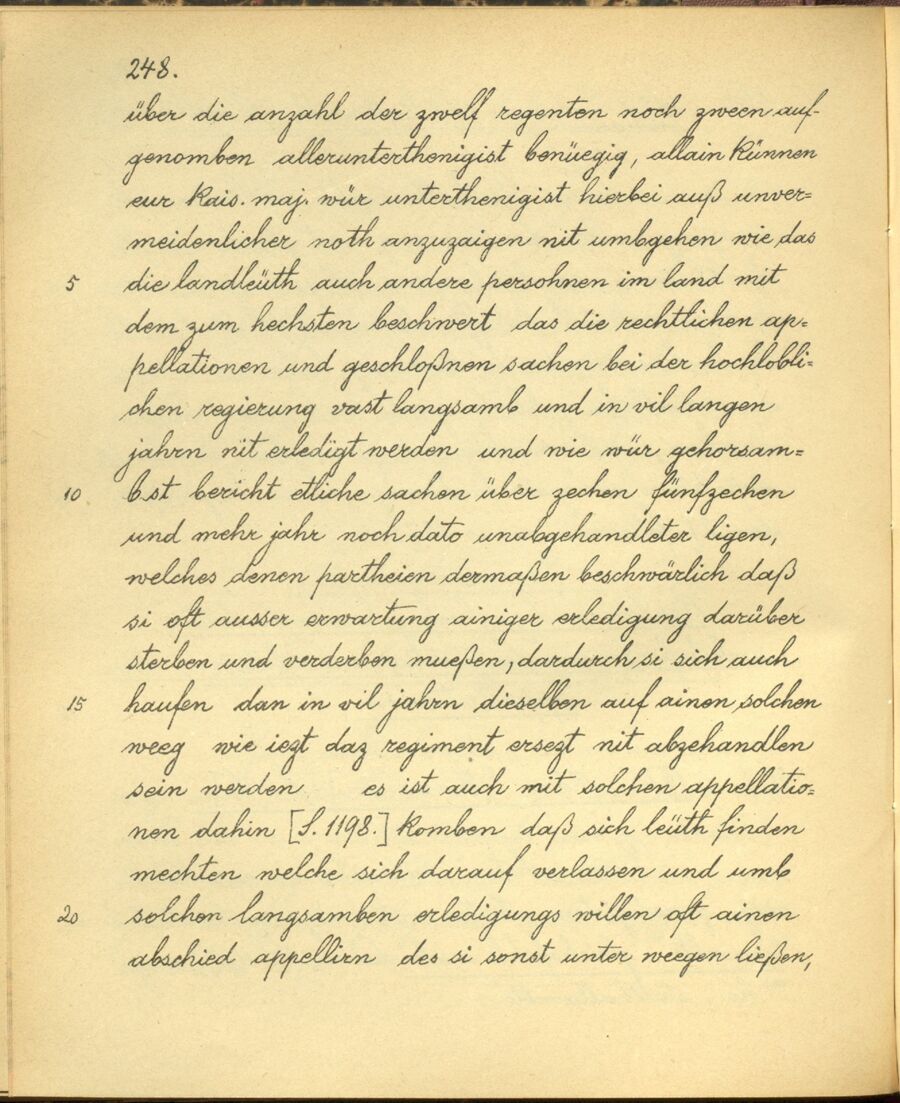 248.
über die anzahl der zwelf regenten noch zween auf-
genomben allerunterthenigist benüegig, allain künnen
eur kais. maj. wür unterthenigist hierbei auß unver=
meidenlicher noth anzuzaigen nit umbgehen wie das
5 die landleüth auch andere persohnen im land mit
dem zum hechsten beschwert das die rechtlichen ap=
pellationen und geschloßnen sachen bei der hochlobli=
chen regierung vast langsamb und in vil langen
jahrn nit erledigt werden und wie wür gehorsam=
10 bst bericht etliche sachen über zechen fünfzechen
und mehr jahr noch dato unabgehandleter ligen,
welches denen partheien dermaßen beschwärlich daß
si oft ausser erwartung ainiger erledigung darüber
sterben und verderben mueßen, dardurch si sich auch
15 haufen dan in vil jahrn dieselben auf ainen solchen
weeg wie iezt daz regiment ersezt nit abzehandlen
sein werden es ist auch mit solchen appellatio=
nen dahin [S. 1198.] komben daß sich leüth finden
mechten welche sich darauf verlassen und umb
20 solchen langsamben erledigungs willen oft ainen
abschied appellirn des si sonst unter weegen ließen,